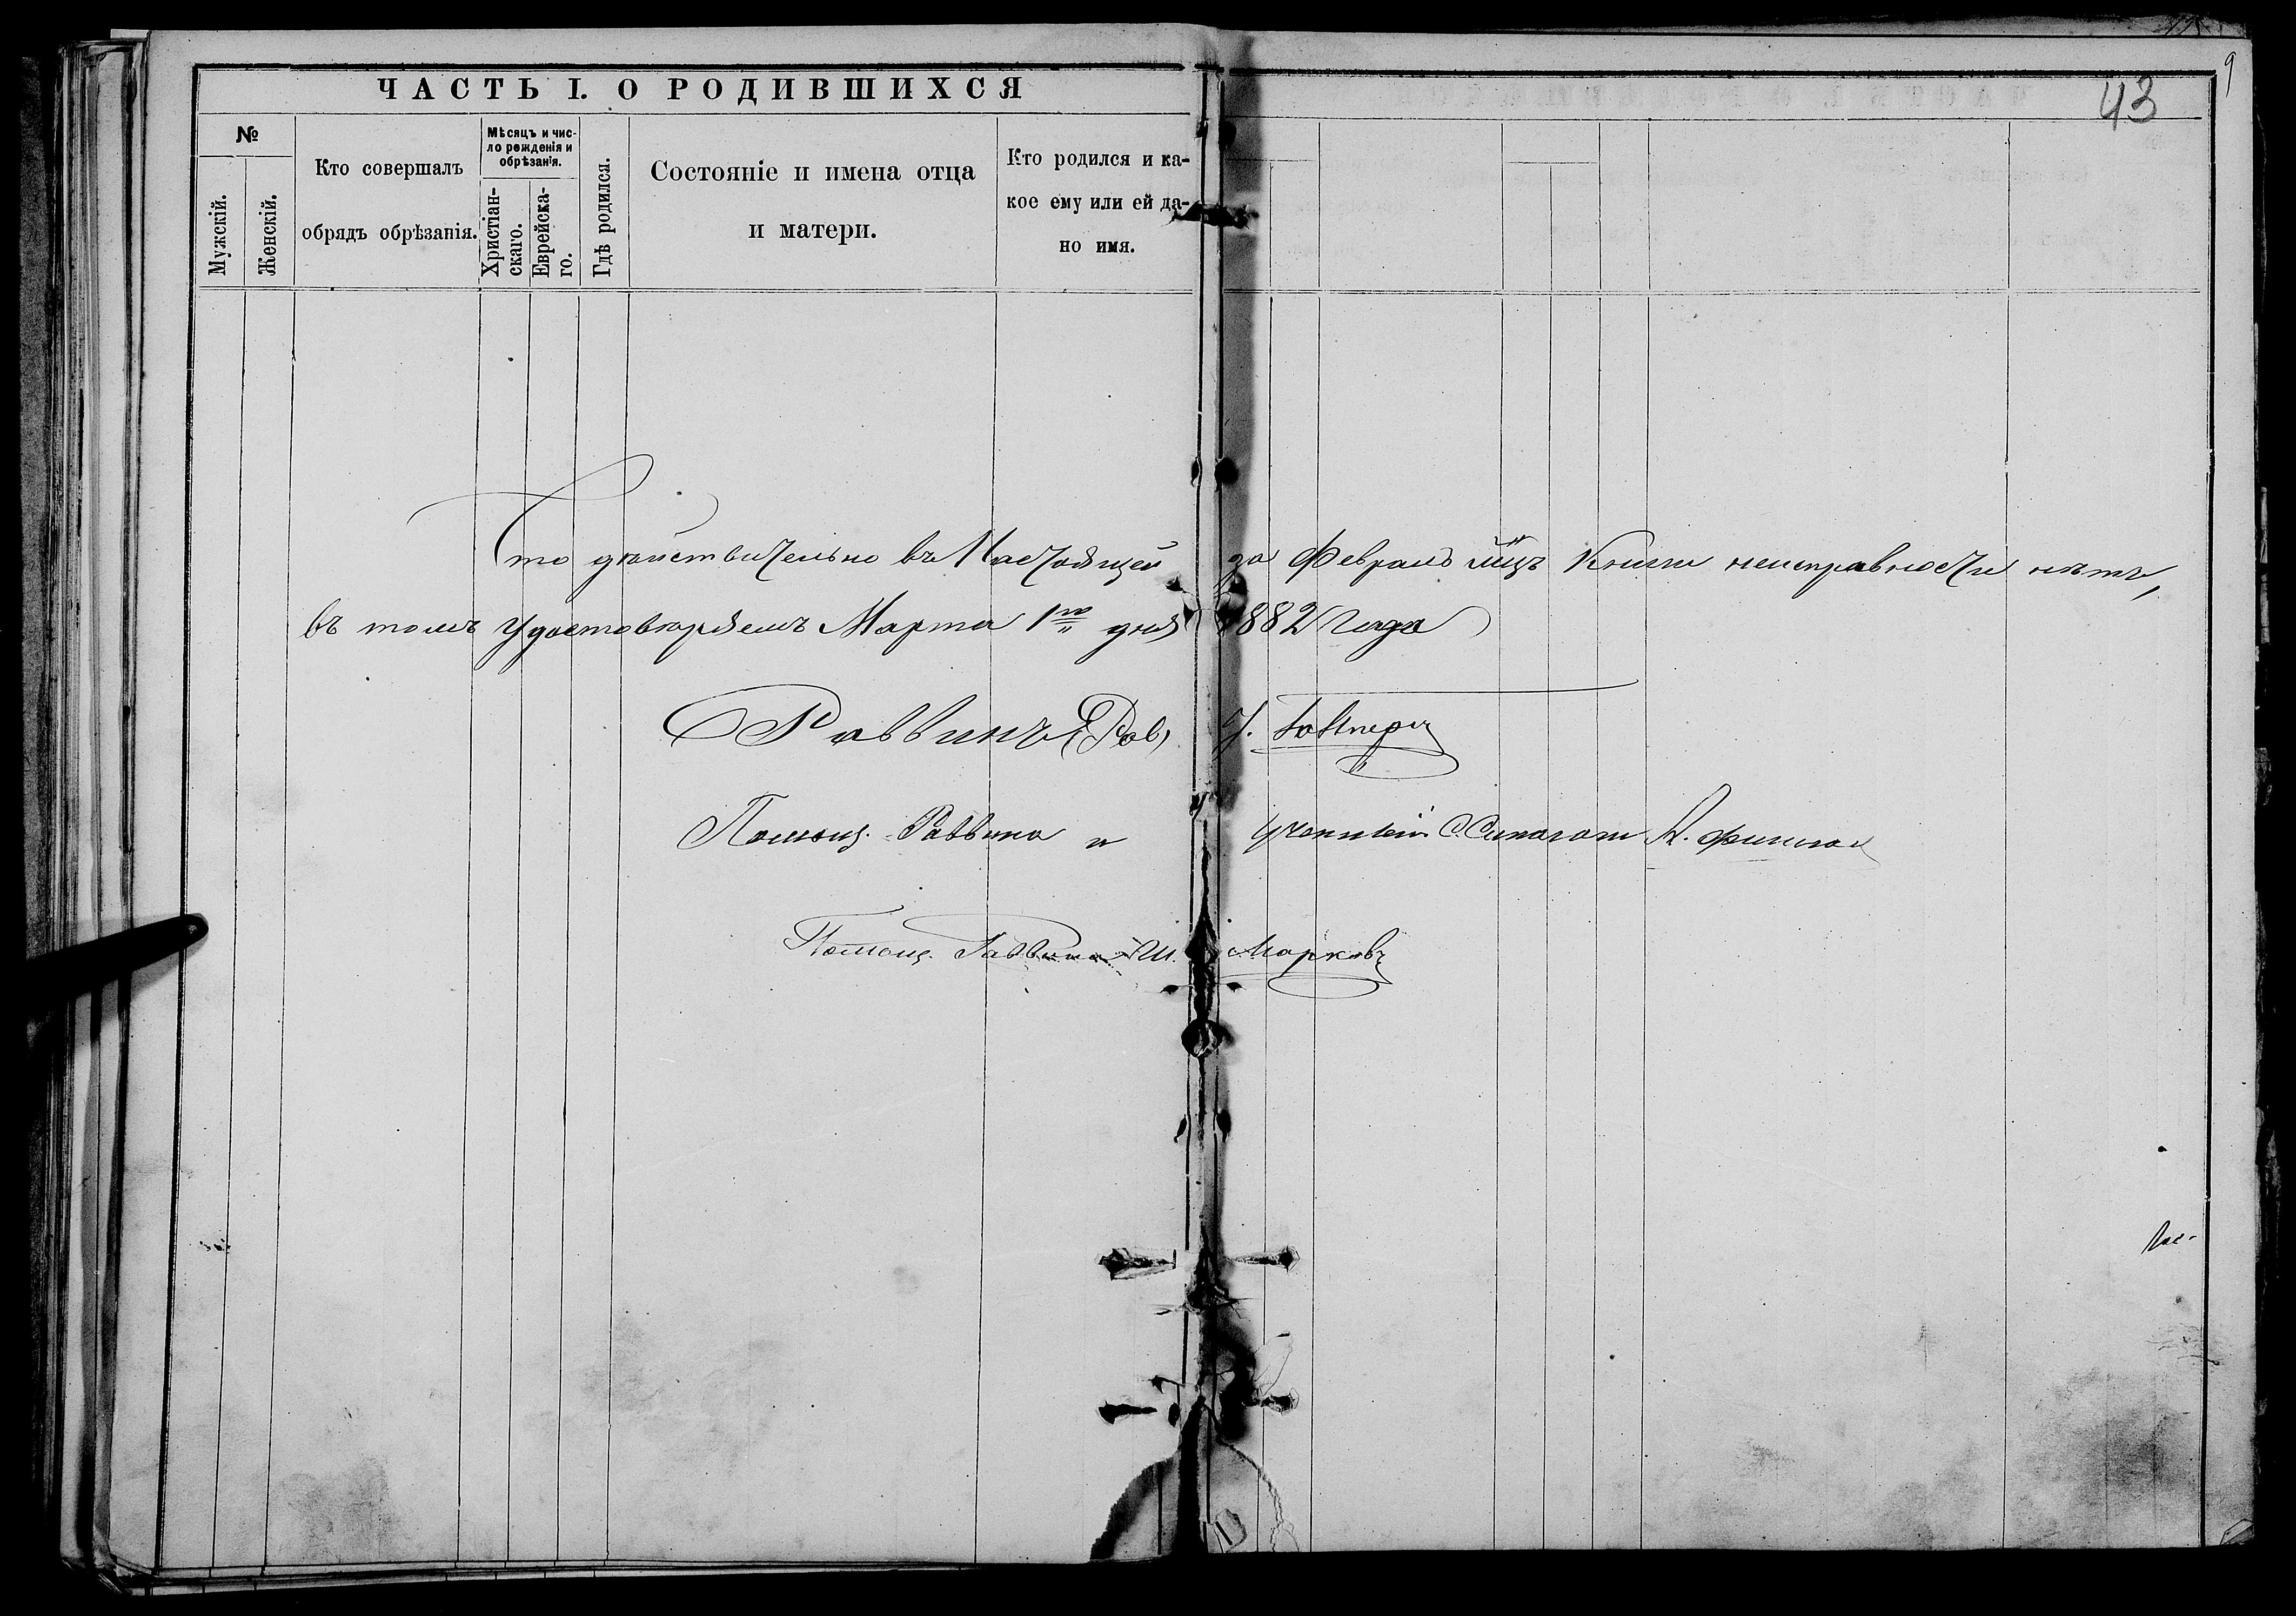 ЧАСТЬ I. О РОДИВШИХСЯ
43
9
№
Мужскій.
Женскій.
Кто совершалъ
обрядъ обрѣзанія.
Мѣсяцъ и чис-
ло рожденія и
обрѣзанія.
Христіан-
скаго.
Еврейска-
го.
Гдѣ родился.
Состояніе и имена отца
и матери.
Кто родился и ка-
кое ему или ей да-
но имя.
Что действительно въ Настоящей за Февраль мцъ Книги неисправности нѣтъ,
въ томъ удостовѣряемъ Марта 1го дня 1882 года
Раввинъ
Помощ. Раввина и Ученный С.
Помощ. Раввина Ш. Марковъ